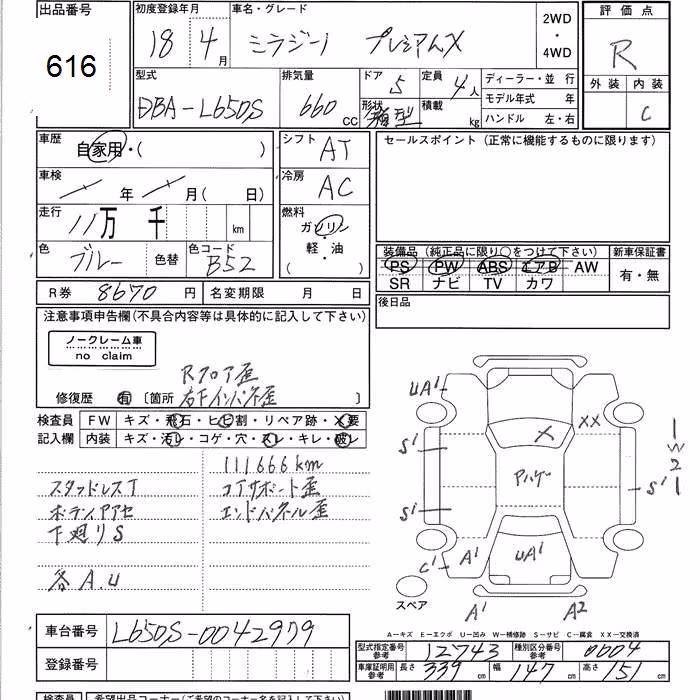 出品番号 初度登録年月 車名・グレード 2WD・4WD 評価点
616 18 4月 ミラジーノ プレミアムX R
型式 排気量 ドア 5 定員 4人 ディーラー・並行 外装 内装
DBA-L650S 660cc 形状 箱型 積載 kg モデル年式 年 C
ハンドル 左・右
車歴 自家用・( ) シフト AT セールスポイント (正常に機能するものに限ります)
車検 年 月(日) 冷房 AC
走行 11万 千 km 燃料 ガソリン・軽・油 ( )
色 ブルー 色替 色コード B52
装備品 (純正品に限り○をつけて下さい) 新車保証書
PS PW ABS エアB AW 有・無
SR ナビ TV カワ
R券 8670円 名変期限 月 日 後日品
注意事項申告欄(不具合内容等は具体的に記入して下さい)
ノークレーム車
no claim
Rフロア歪
修復歴 有 〔箇所 右下インパネ歪 〕
検査員 FW キズ・飛石・ヒビ割・リペア跡・×要
記入欄 内装 キズ・汚レ・コゲ・穴・スレ・キレ・破レ
111666km
スタッドレスT コアサポート歪
ボディアアセ エンドパネル歪
下廻りS
各A.U
UA1 XX
S1 X 1
W
2
アハゲ
S1 S1 1
C1 A1 UA1
スペア A1 A2
A-キズ E-エクボ U-凹み W-補修跡 S-サビ C-腐食 XX-交換済
車台番号 L650S-0042979 型式指定番号 参考 12743 種別区分番号 参考 0604
登録番号 車庫証明用 参考 長さ 339cm 幅 147cm 高さ 151cm
検査員 希望出品コーナー(ご希望のコーナー名を記入して下さい)